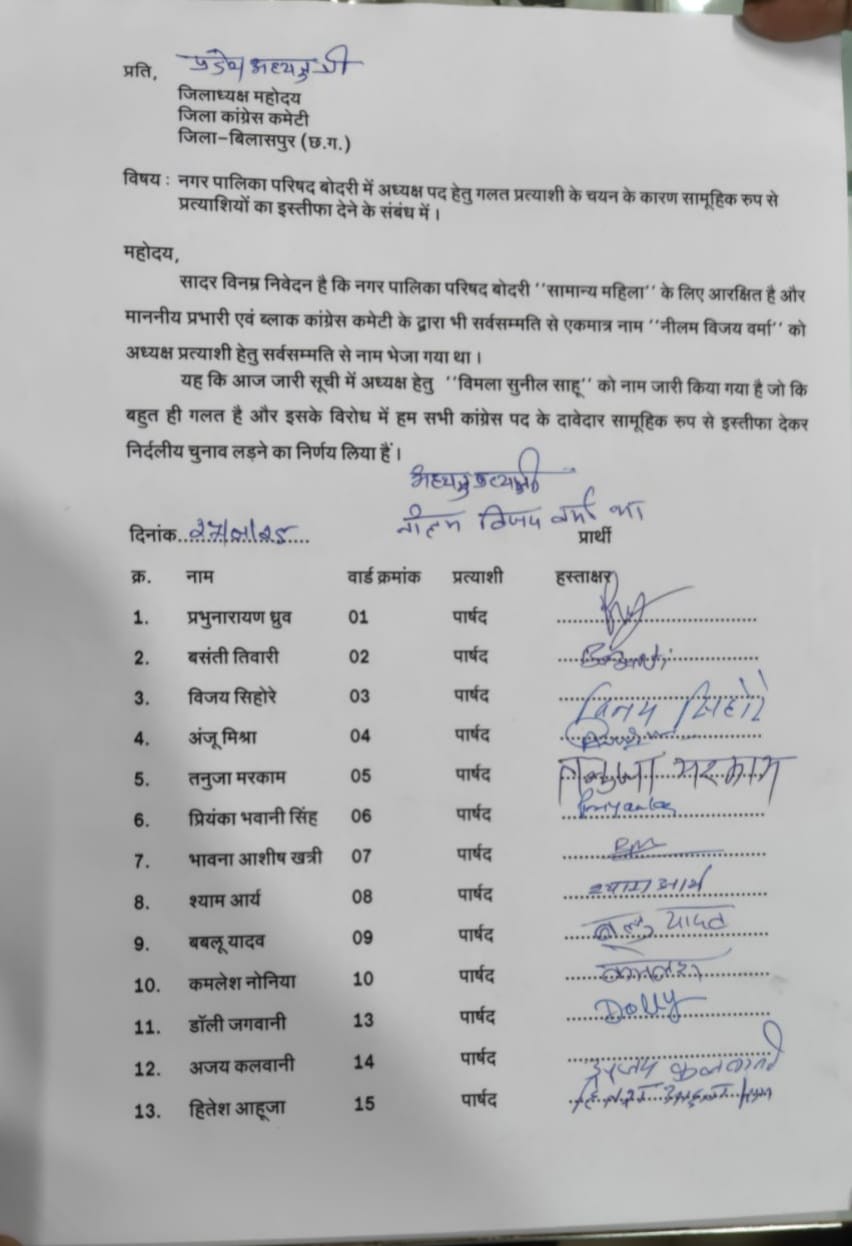 प्रति, प्रदेश अध्यक्ष श्री
जिलाध्यक्ष महोदय
जिला कांग्रेस कमेटी
जिला–बिलासपुर (छ.ग.)
विषय : नगर पालिका परिषद बोदरी में अध्यक्ष पद हेतु गलत प्रत्याशी के चयन के कारण सामूहिक रुप से
प्रत्याशियों का इस्तीफा देने के संबंध में ।
महोदय,
सादर विनम्र निवेदन है कि नगर पालिका परिषद बोदरी ''सामान्य महिला'' के लिए आरक्षित है और
माननीय प्रभारी एवं ब्लाक कांग्रेस कमेटी के द्वारा भी सर्वसम्मति से एकमात्र नाम ''नीलम विजय वर्मा'' को
अध्यक्ष प्रत्याशी हेतु सर्वसम्मति से नाम भेजा गया था ।
यह कि आज जारी सूची में अध्यक्ष हेतु ''विमला सुनील साहू'' को नाम जारी किया गया है जो कि
बहुत ही गलत है और इसके विरोध में हम सभी कांग्रेस पद के दावेदार सामूहिक रुप से इस्तीफा देकर
निर्दलीय चुनाव लड़ने का निर्णय लिया हैं ।
अध्यक्ष प्रत्याशी
नीलम विजय वर्मा
दिनांक..27/01/25.... प्रार्थी
क्र. नाम वार्ड क्रमांक प्रत्याशी हस्ताक्षर
1. प्रभुनारायण ध्रुव 01 पार्षद
2. बसंती तिवारी 02 पार्षद
3. विजय सिहोरे 03 पार्षद विजय सिहोरे
4. अंजू मिश्रा 04 पार्षद
5. तनुजा मरकाम 05 पार्षद तनुजा मरकाम
6. प्रियंका भवानी सिंह 06 पार्षद Priyanka
7. भावना आशीष खत्री 07 पार्षद
8. श्याम आर्य 08 पार्षद श्याम आर्य
9. बबलू यादव 09 पार्षद बबलू यादव
10. कमलेश नोनिया 10 पार्षद कमलेश
11. डॉली जगवानी 13 पार्षद Dolly
12. अजय कलवानी 14 पार्षद अजय कलवानी
13. हितेश आहूजा 15 पार्षद